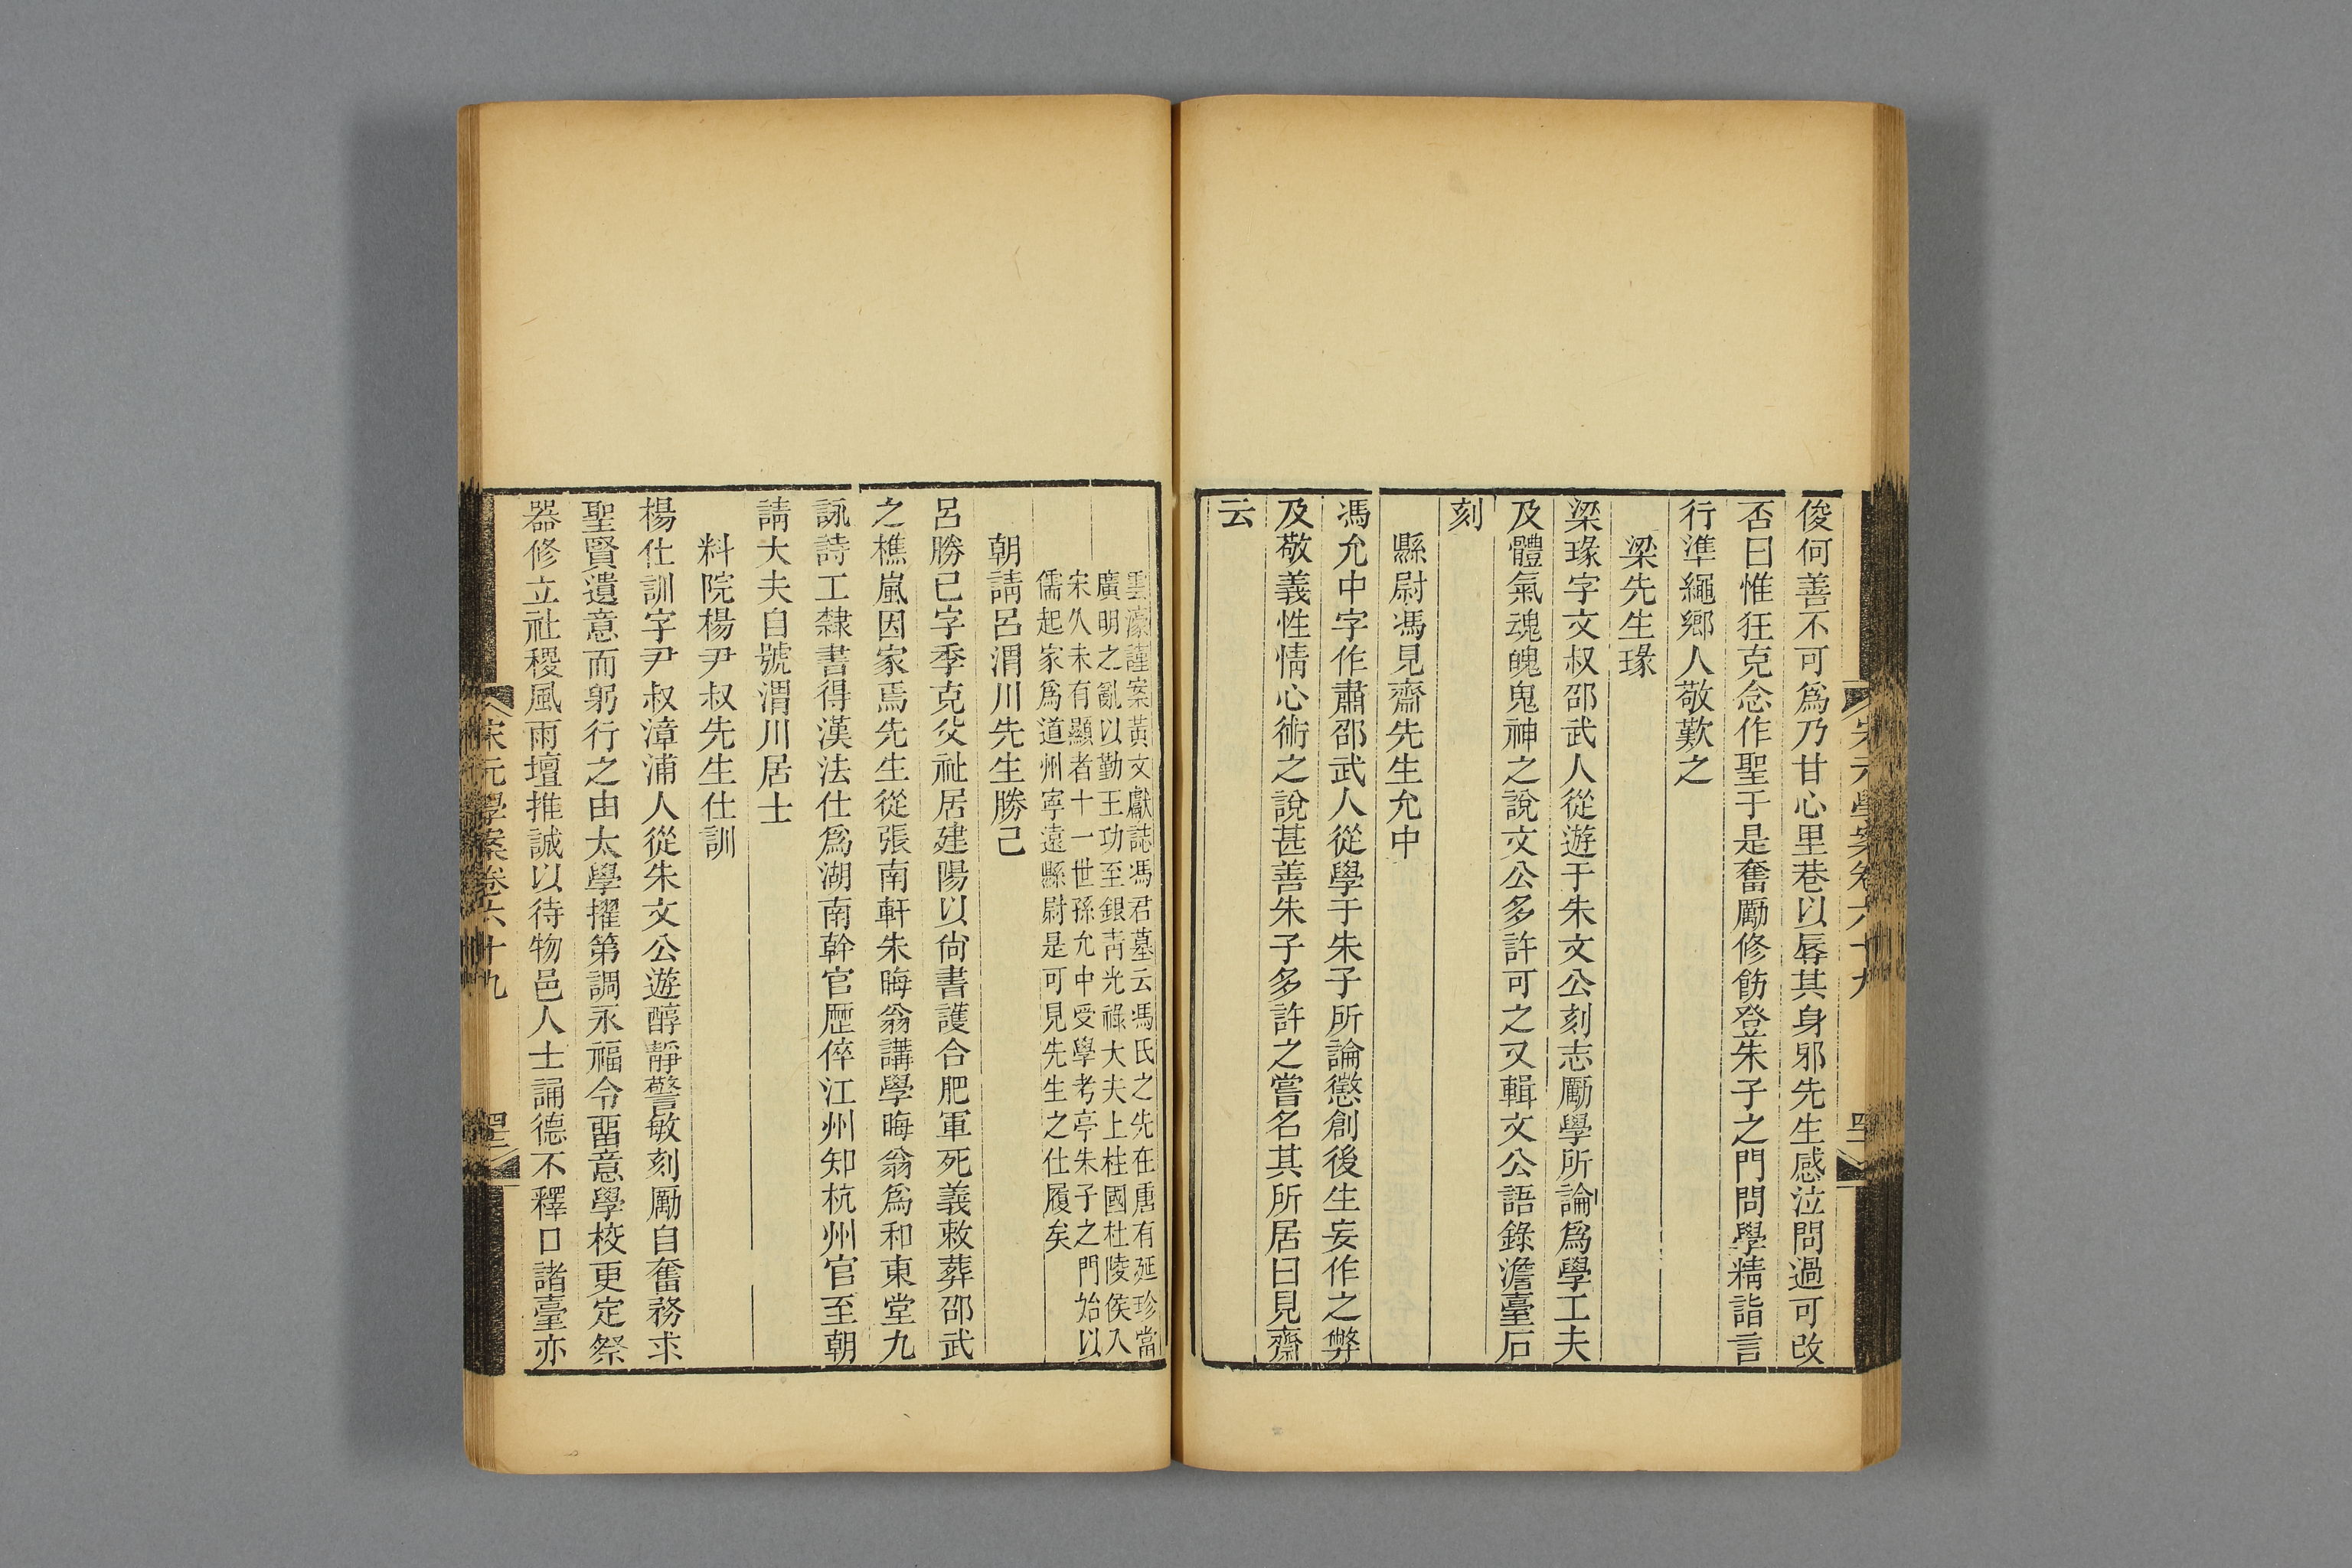 俊何善不可爲乃甘心里巷以辱其身邪先生感泣問過可改
否曰惟狂克念作聖于是奮勵修飭登朱子之門問學精詣言
行準繩鄉人敬歎之
梁先生瑑
梁瑑字文叔邵武人從遊于朱文公刻志勵學所論爲學工夫
及體氣魂魄鬼神之說文公多許可之又輯文公語錄澹臺石
刻
縣尉馮見齋先生允中
馮允中字作肅邵武人從學于朱子所論懲創後生妄作之弊
及敬義性情心術之說甚善朱子多許之嘗名其所居曰見齋
云
雲濠謹案黃文獻誌馮君墓云馮氏之先在唐有延珍當
廣明之亂以勤王功至銀靑光祿大夫上柱國杜陵侯入
宋久未有顯者十一世孫允中受學考亭朱子之門始以
儒起家爲道州寧遠縣尉是可見先生之仕履矣
朝請呂渭川先生勝己
呂勝己字季克父祉居建陽以尙書護合肥軍死義敕葬邵武
之樵嵐因家焉先生從張南軒朱晦翁講學晦翁爲和東堂九
詠詩工隸書得漢法仕爲湖南幹官歷倅江州知杭州官至朝
請大夫自號渭川居士
料院楊尹叔先生仕訓
楊仕訓字尹叔漳浦人從朱文公遊醇靜警敏刻勵自奮務求
聖賢遺意而躬行之由太學擢第調永福令畱意學校更定祭
器修立社稷風雨壇推誠以待物邑人士誦德不釋口諸臺亦
宋元學案卷六十九